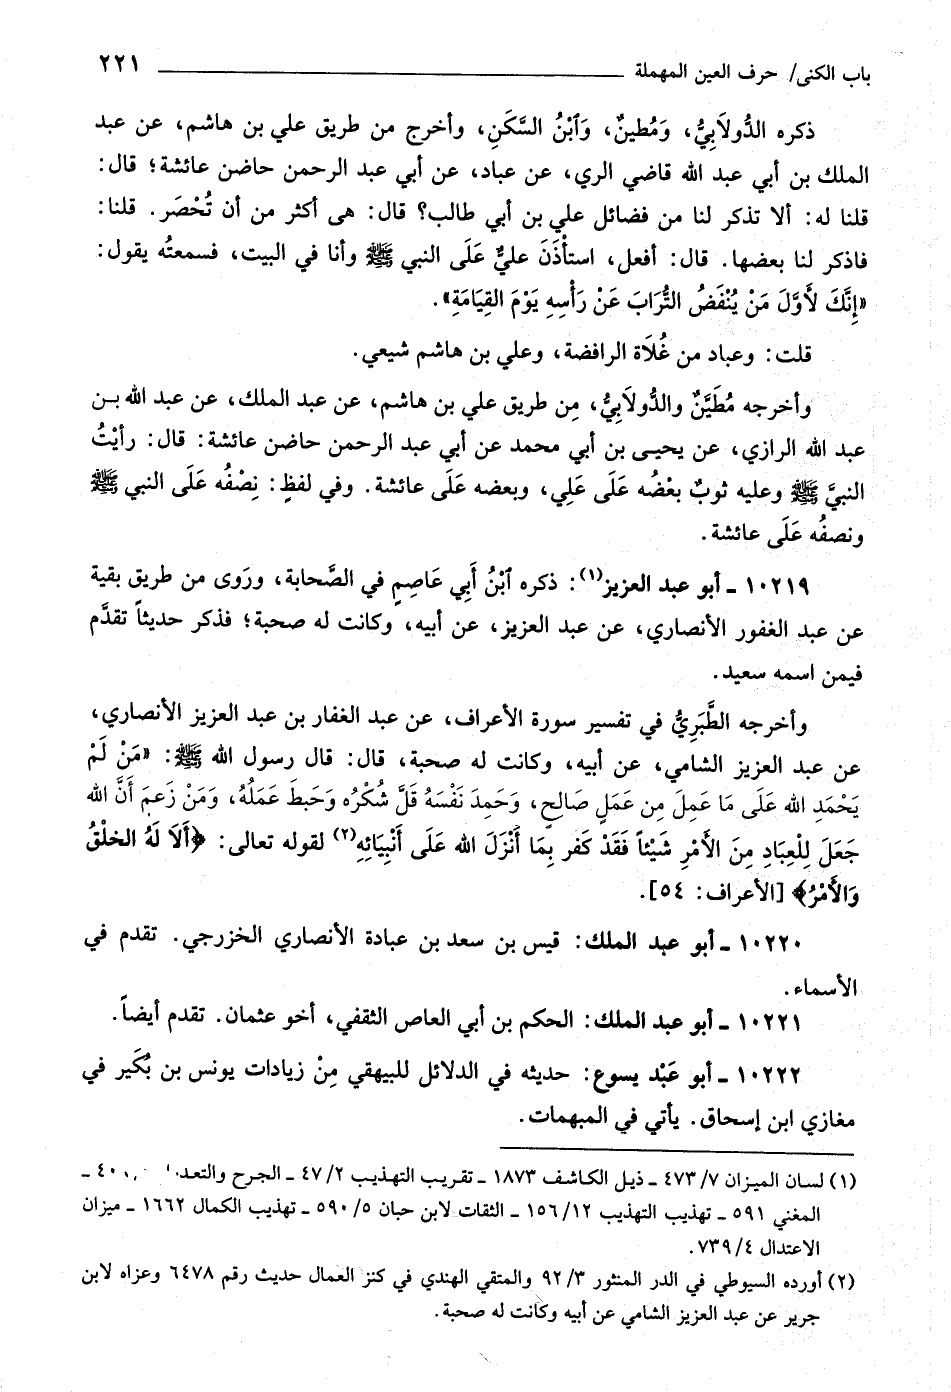 باب الكنى/ حرف العين المهملة ٢٢١
ذكره الدُّولَابِيُّ، وَمُطينٌ، وَٱبْنُ السَّكَنِ، وأخرج من طريق علي بن هاشم، عن عبد
الملك بن أبي عبد الله قاضي الري، عن عباد، عن أبي عبد الرحمن حاضن عائشة؛ قال:
قلنا له: ألا تذكر لنا من فضائل علي بن أبي طالب؟ قال: هى أكثر من أن تُحْصَر. قلنا:
فاذكر لنا بعضها. قال: أفعل، استأْذَنَ عليٌّ عَلَى النبي ﷺ وأنا في البيت، فسمعتُه يقول:
«إِنَّكَ لأَوَّلَ مَنْ يُنْفَضُ التُّرَابَ عَنْ رَأْسِهِ يَوْمَ القِيَامَةِ».
قلت: وعباد من غُلَاة الرافضة، وعلي بن هاشم شيعي.
وأخرجه مُطَيَّنٌ والدُّولَابِيُّ، مِن طريق علي بن هاشم، عن عبد الملك، عن عبد الله بـن
عبد الله الرازي، عن يحيـى بن أبي محمد عن أبي عبد الرحمن حاضن عائشة: قال: رأيْتُ
النبيَّ ﷺ وعليه ثوبٌ بعْضُه عَلَى عَلِي، وبعضه عَلَى عائشة. وفي لفظٍ: نِصْفُه عَلَى النبي ﷺ
ونصفُه عَلَى عائشة.
١٠٢١٩ ـ أبو عبد العزيز(١): ذكره ٱبْنُ أَبِي عَاصِمٍ في الصَّحابة، ورَوى من طريق بقية
عن عبد الغفور الأنصاري، عن عبد العزيز، عن أبيه، وكانت له صحبة؛ فذكر حديثاً تقدَّم
فيمن اسمه سعيد.
وأخرجه الطَّبَرِيُّ في تفسير سورة الأعراف، عن عبد الغفار بن عبد العزيز الأنصاري،
عن عبد العزيز الشامي، عن أبيه، وكانت له صحبة، قال: قال رسول الله ﷺ: «مَنْ لَمْ
يَحْمَدِ الله عَلَى مَا عَمِلَ مِن عَمَلٍ صَالِحٍ، وَحَمِدَ نَفْسَهُ قَلَّ شُكْرُه وَحَبِطَ عَمَلُهُ، وَمَنْ زَعَمَ أَنَّ الله
جَعَلَ لِلْعِبَادِ مِنَ الأَمْرِ شَيْئاً فَقَدْ كَفَر بِمَا أَنْزَلَ الله عَلَى أَنْبِيَائِهِ(٢) لقوله تعالى: ﴿أَلَا لَهُ الخلْقُ
وَالأَمْرُ﴾ [الأعراف: ٥٤].
١٠٢٢٠ ـ أبو عبد الملك: قيس بن سعد بن عبادة الأنصاري الخزرجي. تقدم في
الأسماء.
١٠٢٢١ ـ أبو عبد الملك: الحكم بن أبي العاص الثقفي، أخو عثمان. تقدم أيضاً.
١٠٢٢٢ ـ أبو عَبْد يسوع: حديثه في الدلائل للبيهقي مِنْ زيادات يونس بن بُكَير في
مغازي ابن إسحاق. يأتي في المبهمات.
(١) لسان الميزان ٧/ ٤٧٣ ـ ذيل الكاشف ١٨٧٣ ـ تقريب التهذيب ٢/ ٤٧ ـ الجرح
المغني ٥٩١ ـ تهذيب التهذيب ١٢/ ١٥٦ ـ الثقات لابن حبان ٥/ ٥٩٠ ـ تهذيب الكمال ١٦٦٢ ـ ميزان
الاعتدال ٤/ ٧٣٩.
(٢) أورده السيوطي في الدر المنثور ٣/ ٩٢ والمتقي الهندي في كنز العمال حديث رقم ٦٤٧٨ وعزاه لابن
جرير عن عبد العزيز الشامي عن أبيه وكانت له صحبة.